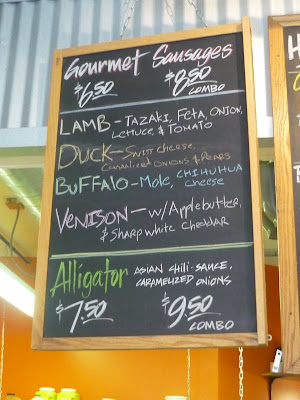 Gourmet Sausages
$6.50 $8.50
COMBO
LAMB - TAZAKI, FETA, ONION,
LETTUCE, & TOMATO
DUCK - SWISS CHEESE,
CARAMELIZED ONIONS & PEARS
BUFFALO - MOLE, CHIHUHUA
CHEESE
VENISON - W/ APPLEBUTTER,
& SHARP WHITE CHEDDAR
Alligator ASIAN CHILI-SAUCE,
CARAMELIZED ONIONS
$7.50 $9.50
COMBO